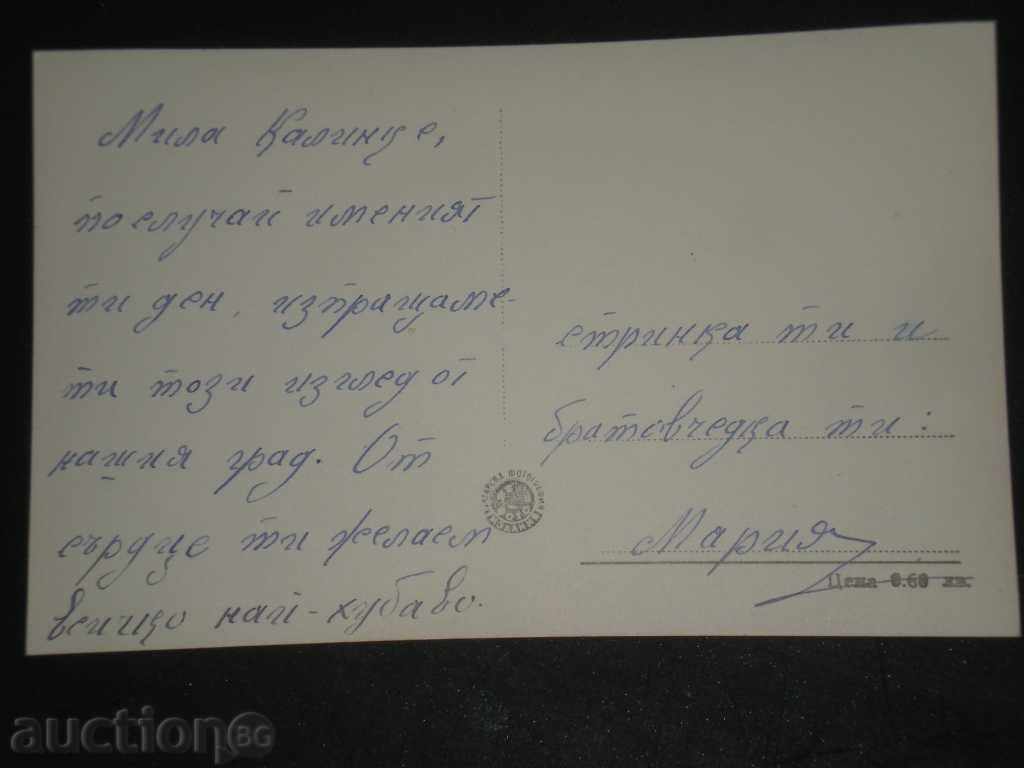 Мила Калинке,
по случай именият
ти ден, изпращаме
ти този изглед от
нашия град. От
сърдце ти желаем
всичко най-хубаво.
стринка ти и
братовчедка ти:
Мария
Цена 0.60 лв.
auction BG